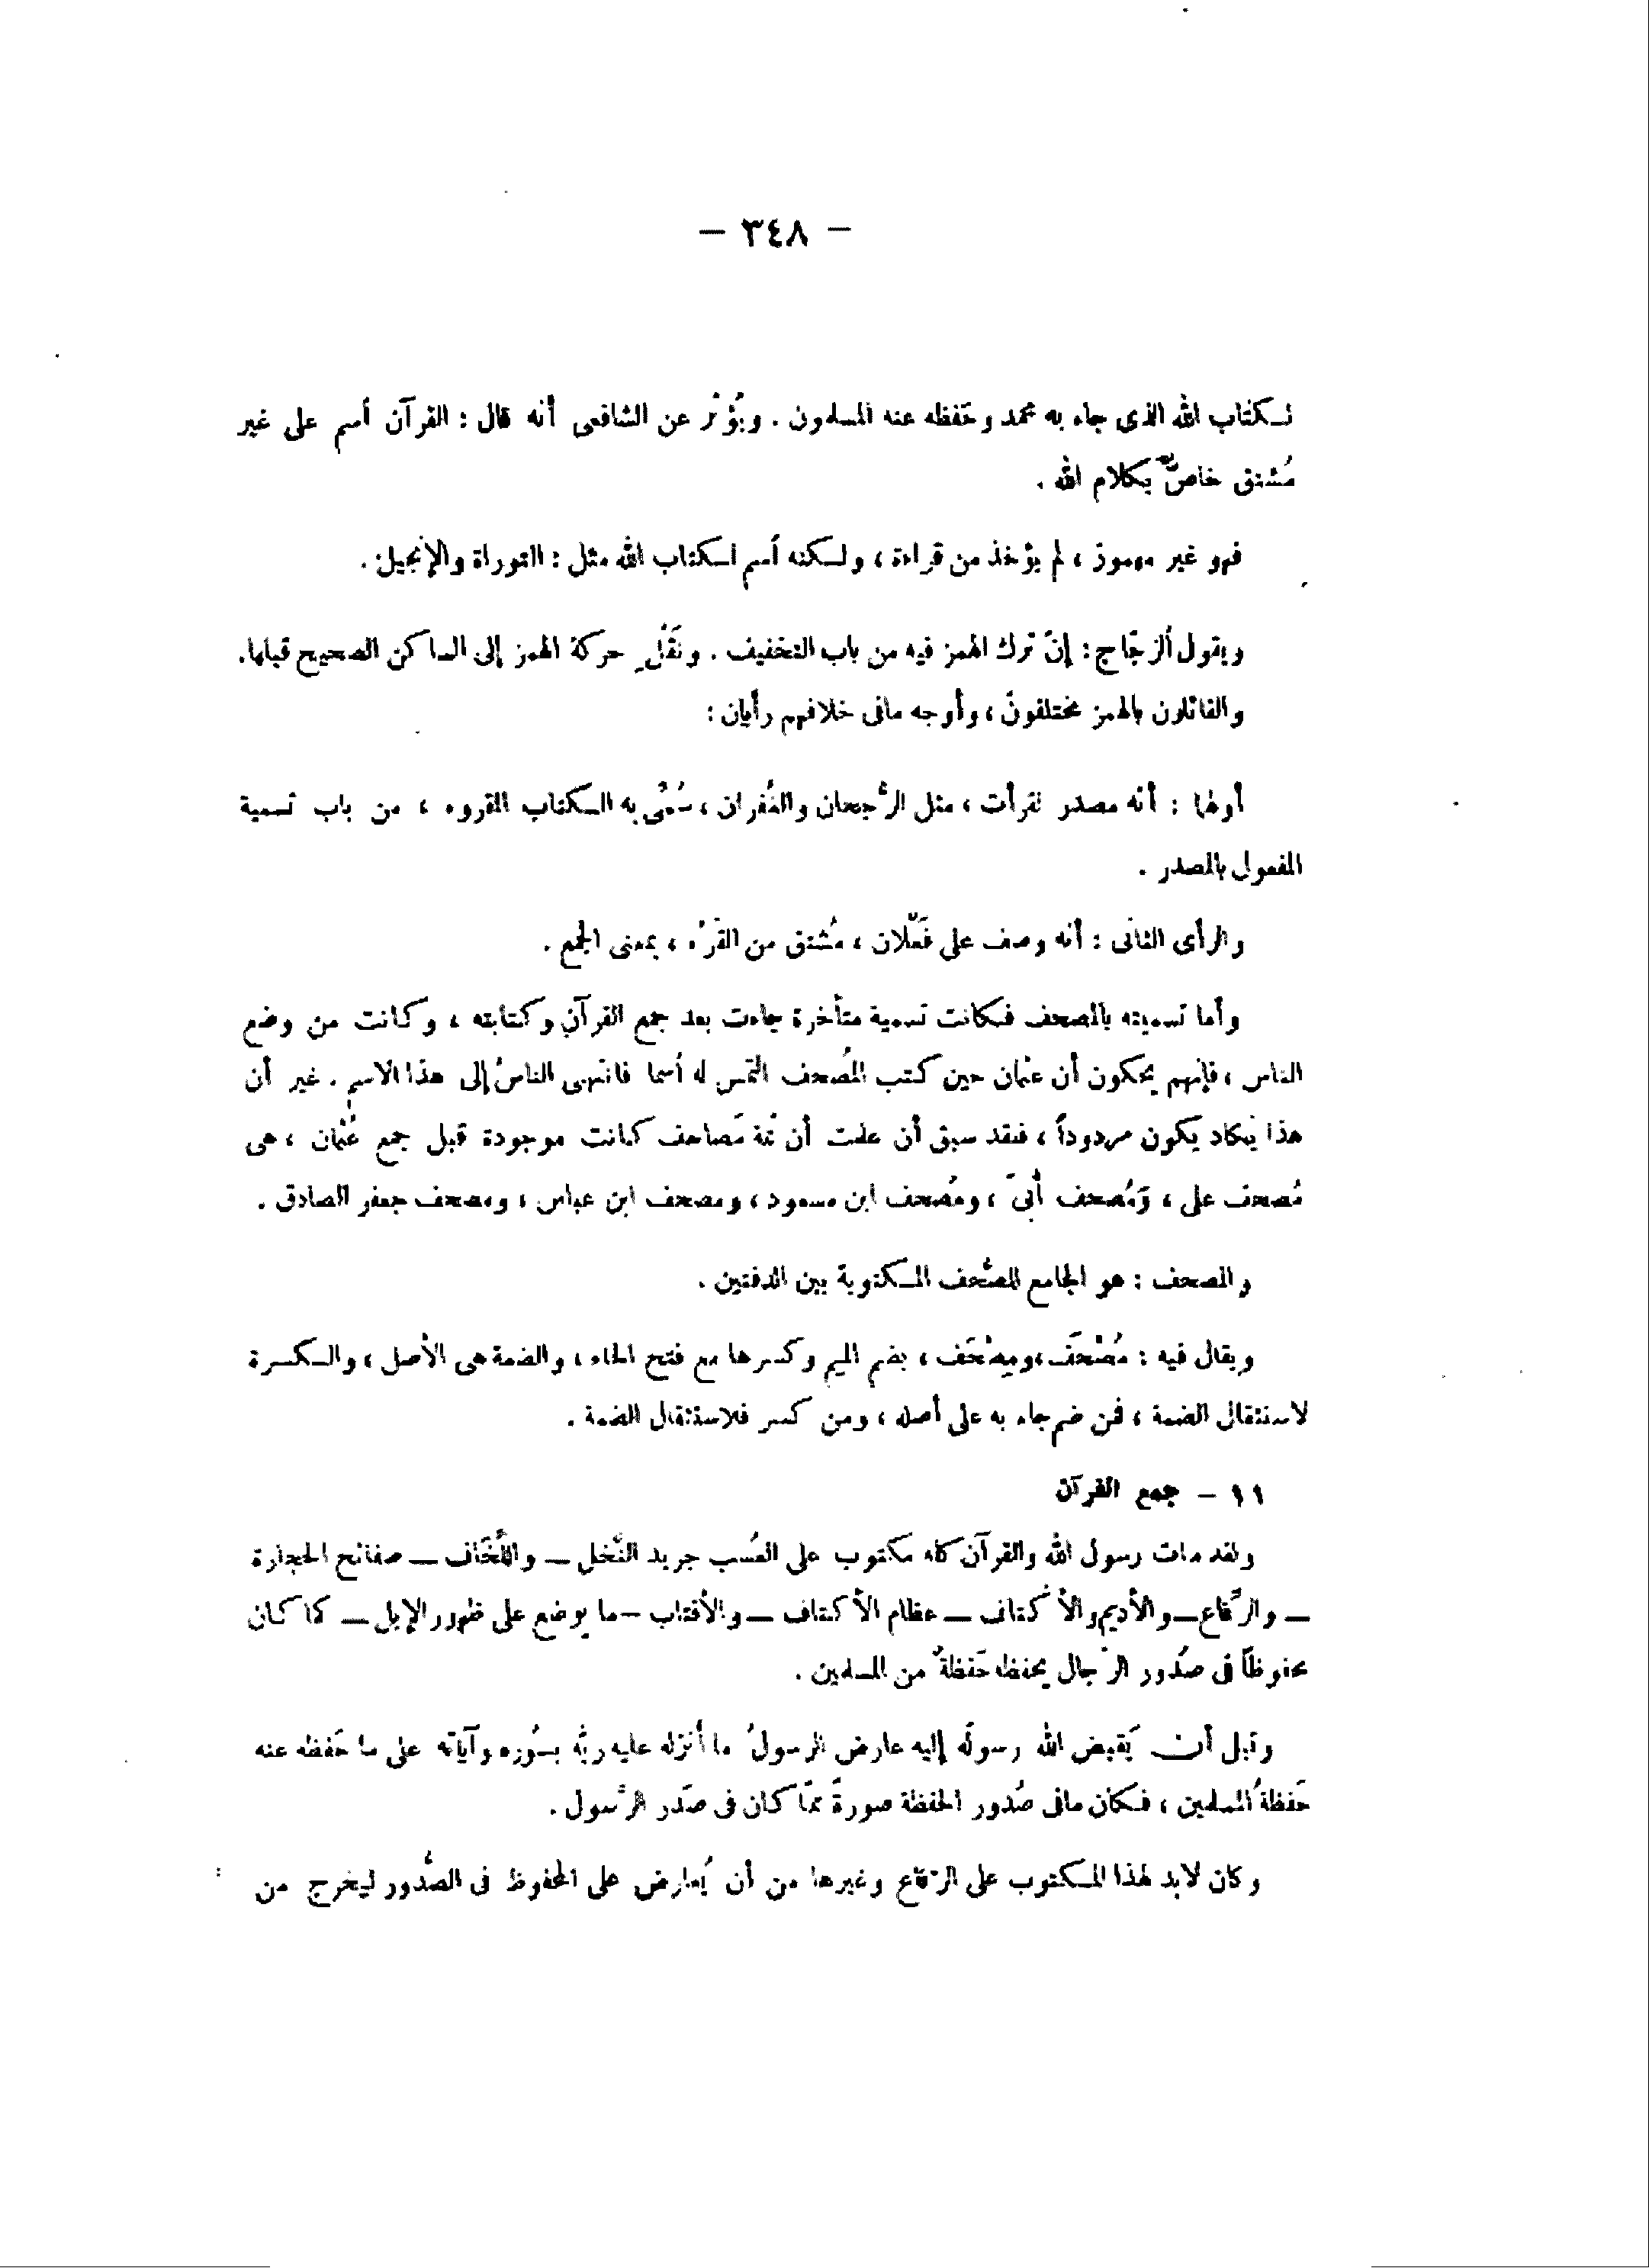 — ٣٤٨ —
لـكتاب الله الذى جاء به محمد وحَفظه عنه المسلمون . ويُؤْثر عن الشافعى أنه قال : القرآن أسم على غير
مُشتق خاصٌّ بكلام الله .
فهو غير مهموز ، لم يؤخذ من قراءة ، ولـكنه أسم لـكتاب الله مثل : التوراة والإنجيل .
ويقول ألزجّاج : إنّ ترك الهمز فيه من باب التخفيف . ونَقْلِ حركة الهمز إلى الساكن الصحيح قبلها .
والقائلون بالهمز مختلفون ، وأوجه مافى خلافهم رأيان :
أولهما : أنه مصدر لقرأت ، مثل الرُّجحان والغُفران ، سُمِّى به الـكتاب المقروء ، من باب تسمية
المفعول بالمصدر .
والرأى الثانى : أنه وصف على فَعْلان ، مُشتق من القَرْء ، بمعنى الجمع .
وأما تسميته بالمصحف فـكانت تسمية متأخرة جاءت بعد جمع القرآن وكتابته ، وكانت من وضع
الناس ، فإنهم يحكون أن عثمان حين كتب المُصحف التمس له أسما فانتهى الناسُ إلى هذا الاسم . غير أن
هذا يكاد يكون مردوداً ، فقد سبق أن علمت أن ثمة مَصاحف كانت موجودة قبل جمع عُثمان ، هى
مُصحف على ، وَمُصحف أُبىّ ، ومُصحف ابن مسعود ، ومصحف ابن عباس ، ومصحف جعفر الصادق .
والمصحف : هو الجامع للصُّحف المـكتوبة بين الدفتين .
ويقال فيه : مُصْحَف ، ومِصْحَف ، بضم الميم وكسرها مع فتح الحاء ، والضمة هى الأصل ، والـكسرة
لاستثقال الضمة ، فمن ضم جاء به على أصله ، ومن كسر فلاستثقال الضمة .
١١ – جمع القرآن
ولقد مات رسول الله والقرآن كله مكتوب على العُسب جريد النَّخل — واللِّخَاف — صفائح الحجارة
— والرِّقاع — والأديم والأكتاف — عظام الأكتاف — والأقتاب – ما يوضع على ظهور الإبل — كما كان
محفوظاً فى صُدور الرّجال يحفظه حَفظةٌ من المسلمين .
وقبل أن يَقبض الله رسولَه إليه عارض الرسولُ ما أنزله عليه ربُّه بسُوره وآياته على ما حَفظه عنه
حَفظةُ المسلمين ، فـكان مافى صُدور الحفظة صورةً ممّا كان فى صَدر الرَّسول .
وكان لابد لهذا المـكتوب على الرّقاع وغيرها من أن يُعارض على المحفوظ فى الصُّدور ليخرج من